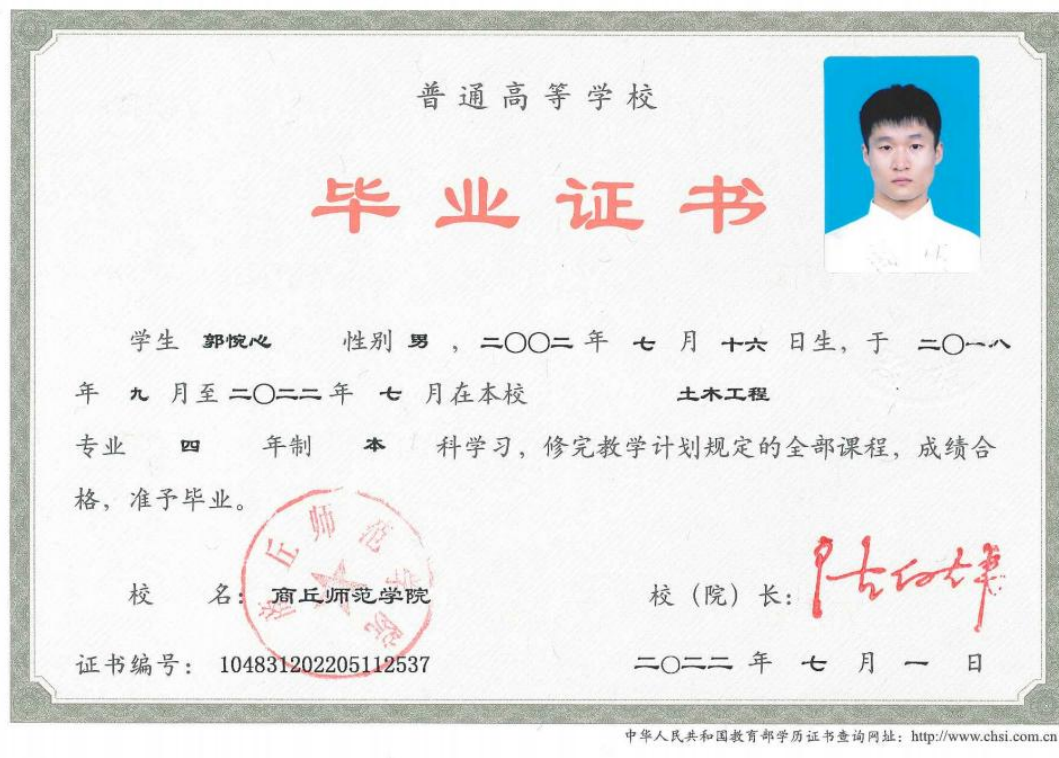 普通高等学校
毕业证书
学生 郭惋心 性别 男 ，二〇〇二 年 七 月 十六 日生，于 二〇一八
年 九 月至 二〇二二 年 七 月在本校 土木工程
专业 四 年制 本 科学习，修完教学计划规定的全部课程，成绩合
格，准予毕业。
商丘师范学院
校 名：商丘师范学院 校（院）长：
证书编号：104831202205112537 二〇二二 年 七 月 一 日
中华人民共和国教育部学历证书查询网址：http://www.chsi.com.cn